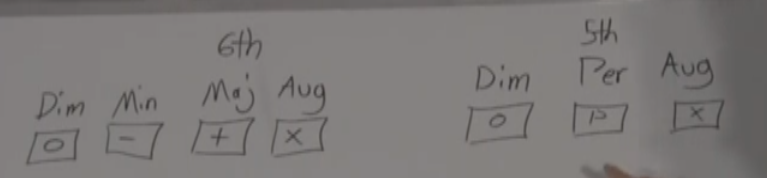 6th
Dim Min Maj Aug
O - + X
5th
Dim Per Aug
O P X